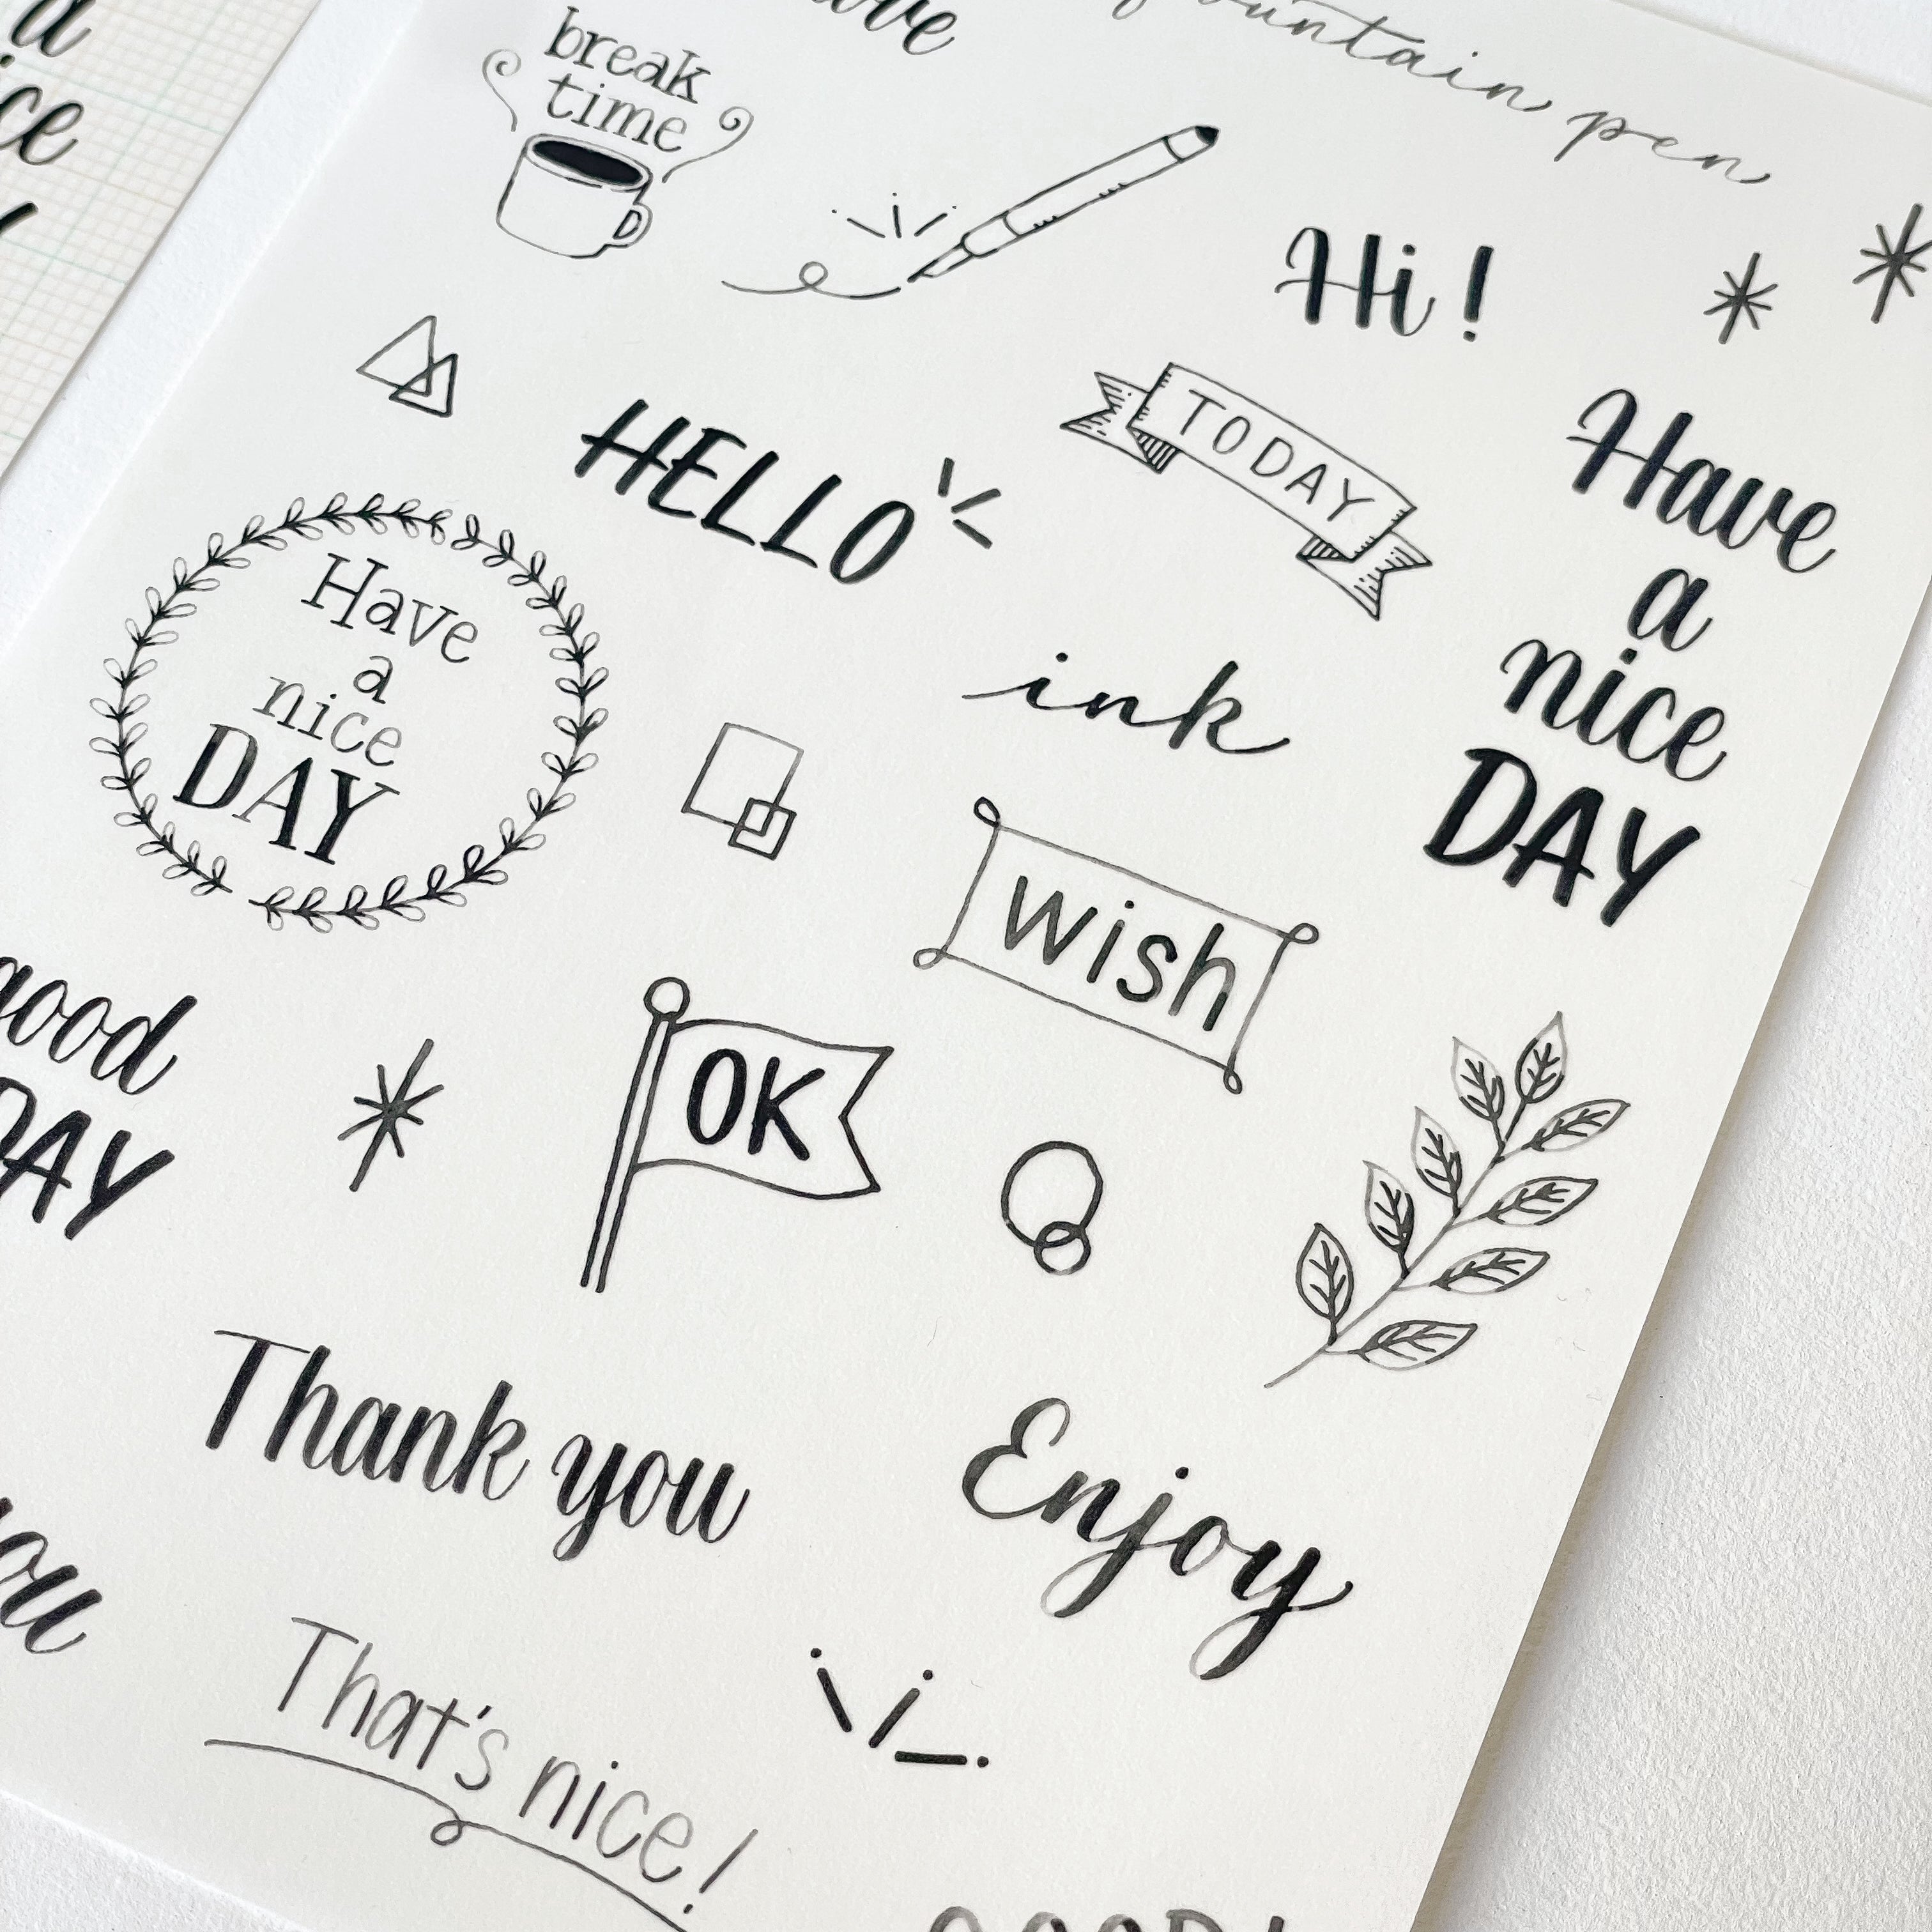 fountain pen
break
time
Hi !
TODAY
HELLO
Have
a
nice
DAY
Have
a
nice
DAY
ink
wish
good
DAY
OK
Thank you
Enjoy
you
That's nice!